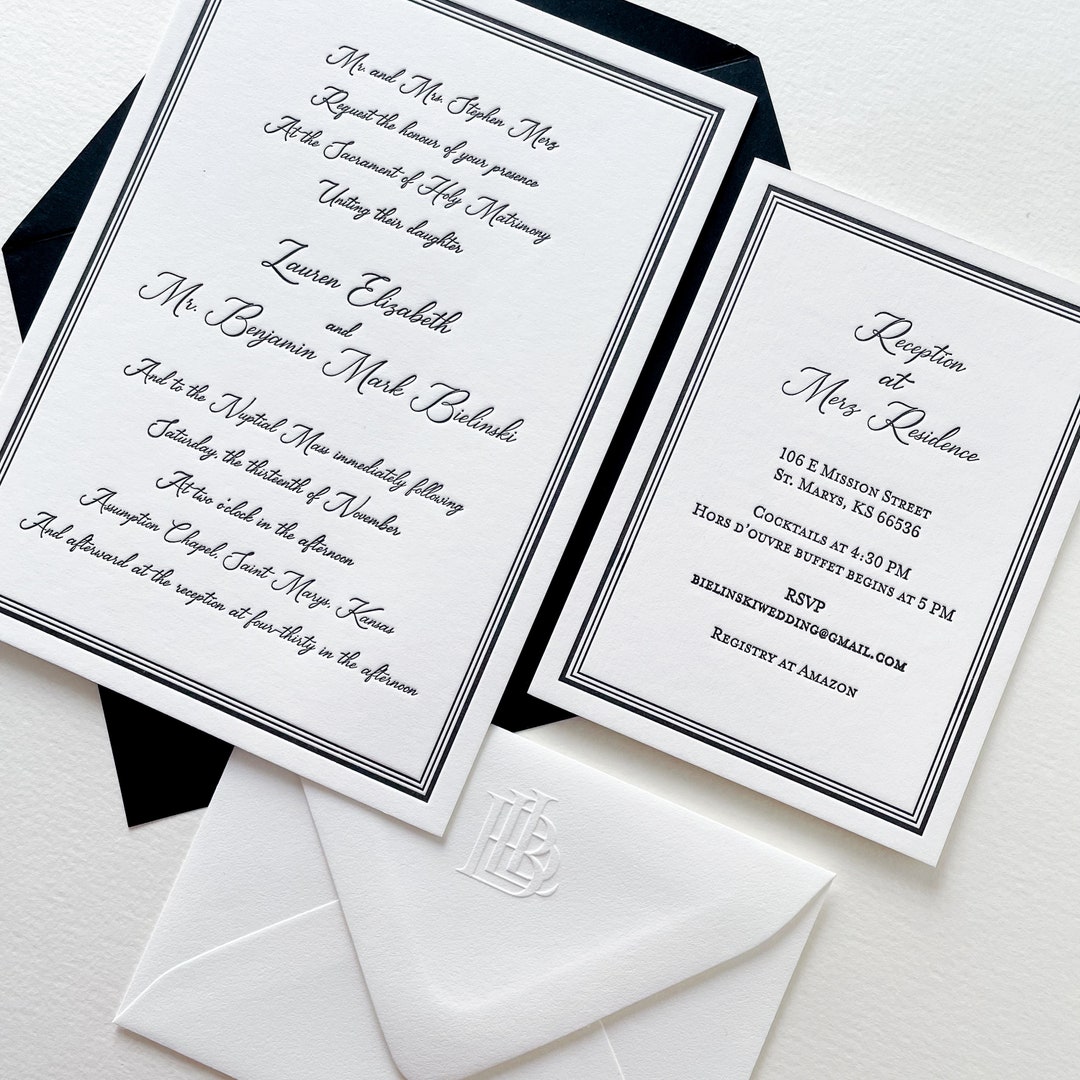 Mr. and Mrs. Stephen Merz
Request the honour of your presence
At the Sacrament of Holy Matrimony
Uniting their daughter
Lauren Elizabeth
and
Mr. Benjamin Mark Bielinski
And to the Nuptial Mass immediately following
Saturday, the thirteenth of November
At two o'clock in the afternoon
Assumption Chapel, Saint Marys, Kansas
And afterward at the reception at four-thirty in the afternoon
Reception
at
Merz Residence
106 E Mission Street
St. Marys, KS 66536
Cocktails at 4:30 PM
Hors d'ouvre buffet begins at 5 PM
RSVP
bielinskiwedding@gmail.com
Registry at Amazon